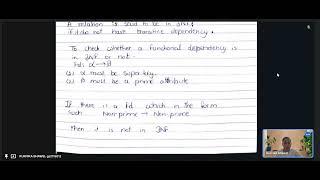 A relation is said to be in 3NF:
if it do not have transitive dependency.
To check whether a functional dependency is
in 3NF or not.
Fd's α→β
(1) α must be super key.
(2) β must be a prime attribute
If there is a fd which in the form
such Nonprime → Non prime
then it is not in 3NF